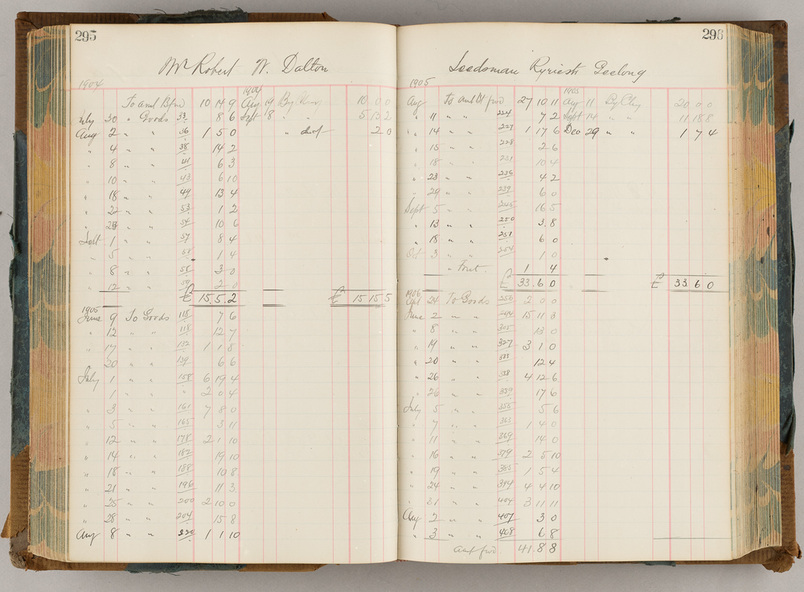 295
Mr Robert W. Dalton
1904
To amt Bfwd 10 14 9
July 30 " Goods 33 8 6
Aug 2 " " 36 1 5 0
" 4 " " 38 14 2
" 8 " " 41 6 3
" 10 " " 43 6 10
" 18 " " 49 13 4
" 22 " " 53 1 2
" " " 10 6
Sept 1 " " 57 8 4
" 5 " " 1 4
" 8 " " 3 0
" 12 " " 2 0
£ 15 5 2
1905
June 9 To Goods 7 6
" 12 " " 118 12 7
" " " 1 1 8
" 20 " " 6 6
July 1 " " 158 6 19 4
" " " 2 0 4
" 3 " " 161 7 8 0
" 5 " " 165 3 11
" 12 " " 178 2 1 10
" 14 " " 182 19 10
" 18 " " 188 10 8
" 21 " " 196 11 3
" 25 " " 200 2 10 0
" 28 " " 204 15 8
Aug 8 " " 220 1 1 10
1904
Aug 19 By 10 0 0
Sept 8 " " 5 13 2
" 2 0
£ 15 15 5
296
Seedsman Ryrie St Geelong
1905
Aug To amt Bfwd 27 10 11
" 11 " " 224 7 2
" 14 " " 227 1 17 6
" 15 " " 228 2 6
" 18 " " 10 4
" 23 " " 236 4 2
" 29 " " 6 0
Sept 5 " " 16 5
" 13 " " 250 3 8
" 18 " " 6 0
Oct 3 " " 1 0
" 1 4
£ 33 6 0
1906
24 To Goods 2 0 0
June 2 " " 15 11 3
" 8 " " 13 0
" 19 " " 327 3 1 0
" 20 " " 12 4
" 26 " " 338 4 12 6
" 26 " " 17 6
July 5 " " 355 5 6
" 7 " " 1 4 0
" 11 " " 369 14 0
" 16 " " 2 5 10
" 19 " " 385 1 5 4
" 24 " " 394 4 4 10
" " " 404 3 11 11
Aug 2 " " 407 3 0
" 3 " " 408 6 8
Amt fwd 41 8 8
1905
Aug 11 By Chq 20 0 0
Sept 14 " " 11 18 8
Dec 29 " " 1 7 4
£ 33 6 0